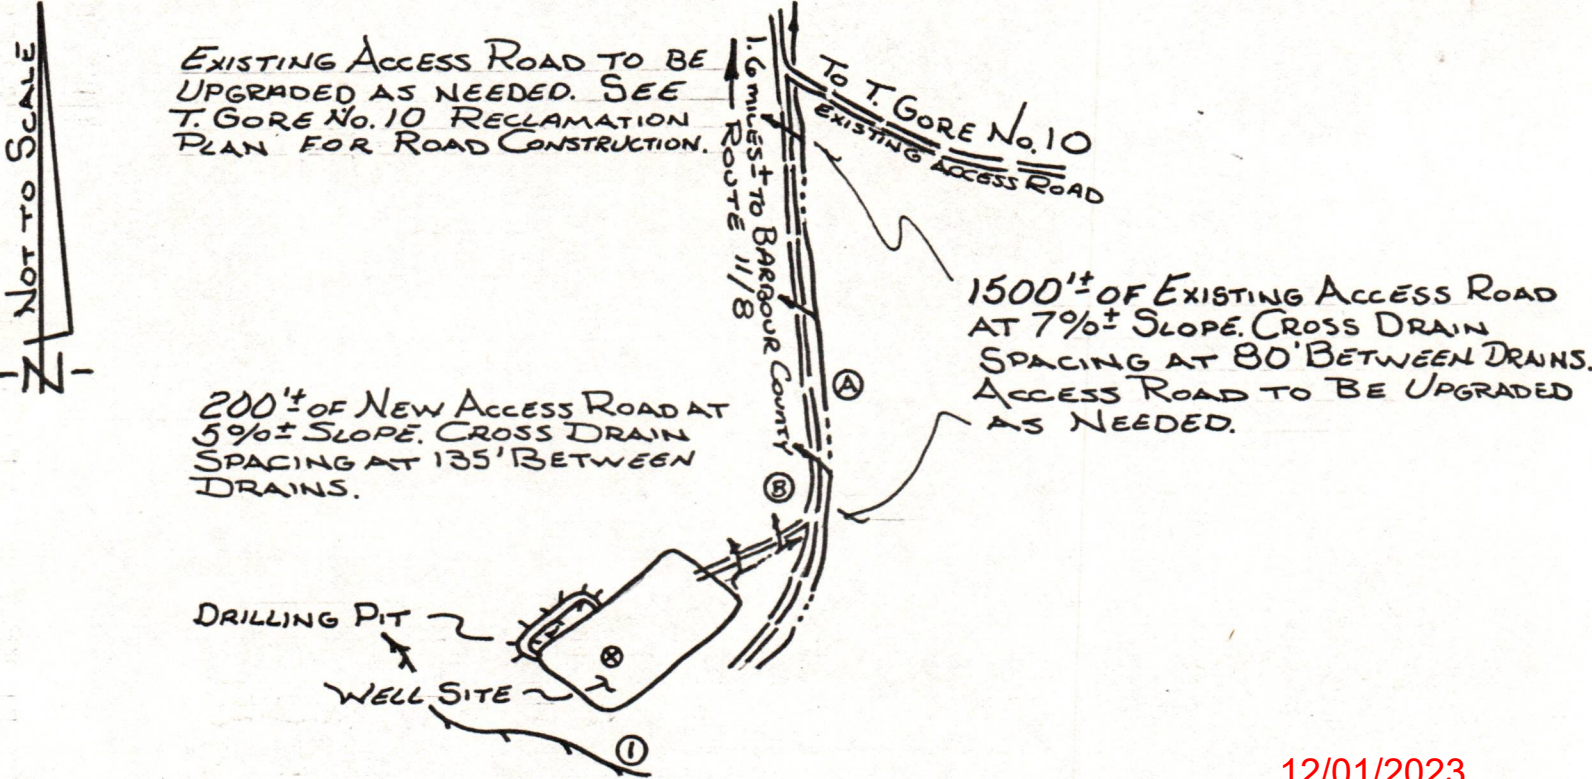 NOT TO SCALE
-N-
EXISTING ACCESS ROAD TO BE
UPGRADED AS NEEDED. SEE
T. GORE No. 10 RECLAMATION
PLAN FOR ROAD CONSTRUCTION.
1.6 MILES ± TO BARBOUR COUNTY
ROUTE 11/8
TO T. GORE No. 10
EXISTING ACCESS ROAD
1500'± OF EXISTING ACCESS ROAD
AT 7%± SLOPE. CROSS DRAIN
SPACING AT 80' BETWEEN DRAINS.
ACCESS ROAD TO BE UPGRADED
AS NEEDED.
A
200'± OF NEW ACCESS ROAD AT
5%± SLOPE. CROSS DRAIN
SPACING AT 135' BETWEEN
DRAINS.
B
DRILLING PIT
WELL SITE
1
12/01/2023